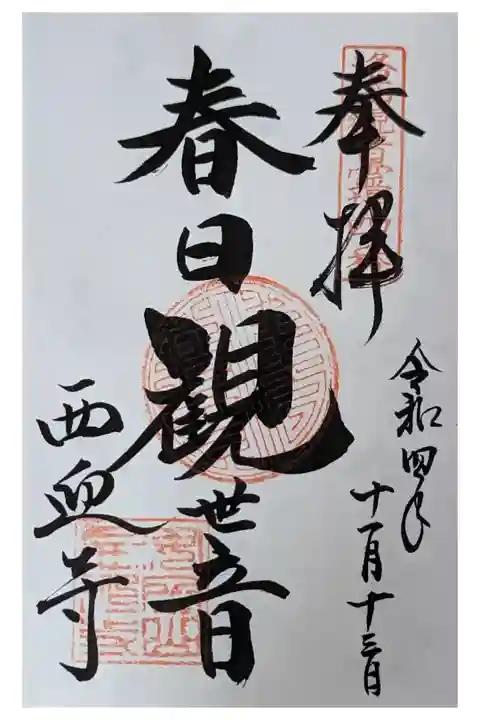 奉拝
令和四年
十一月十三日
春日觀世音
西迎寺